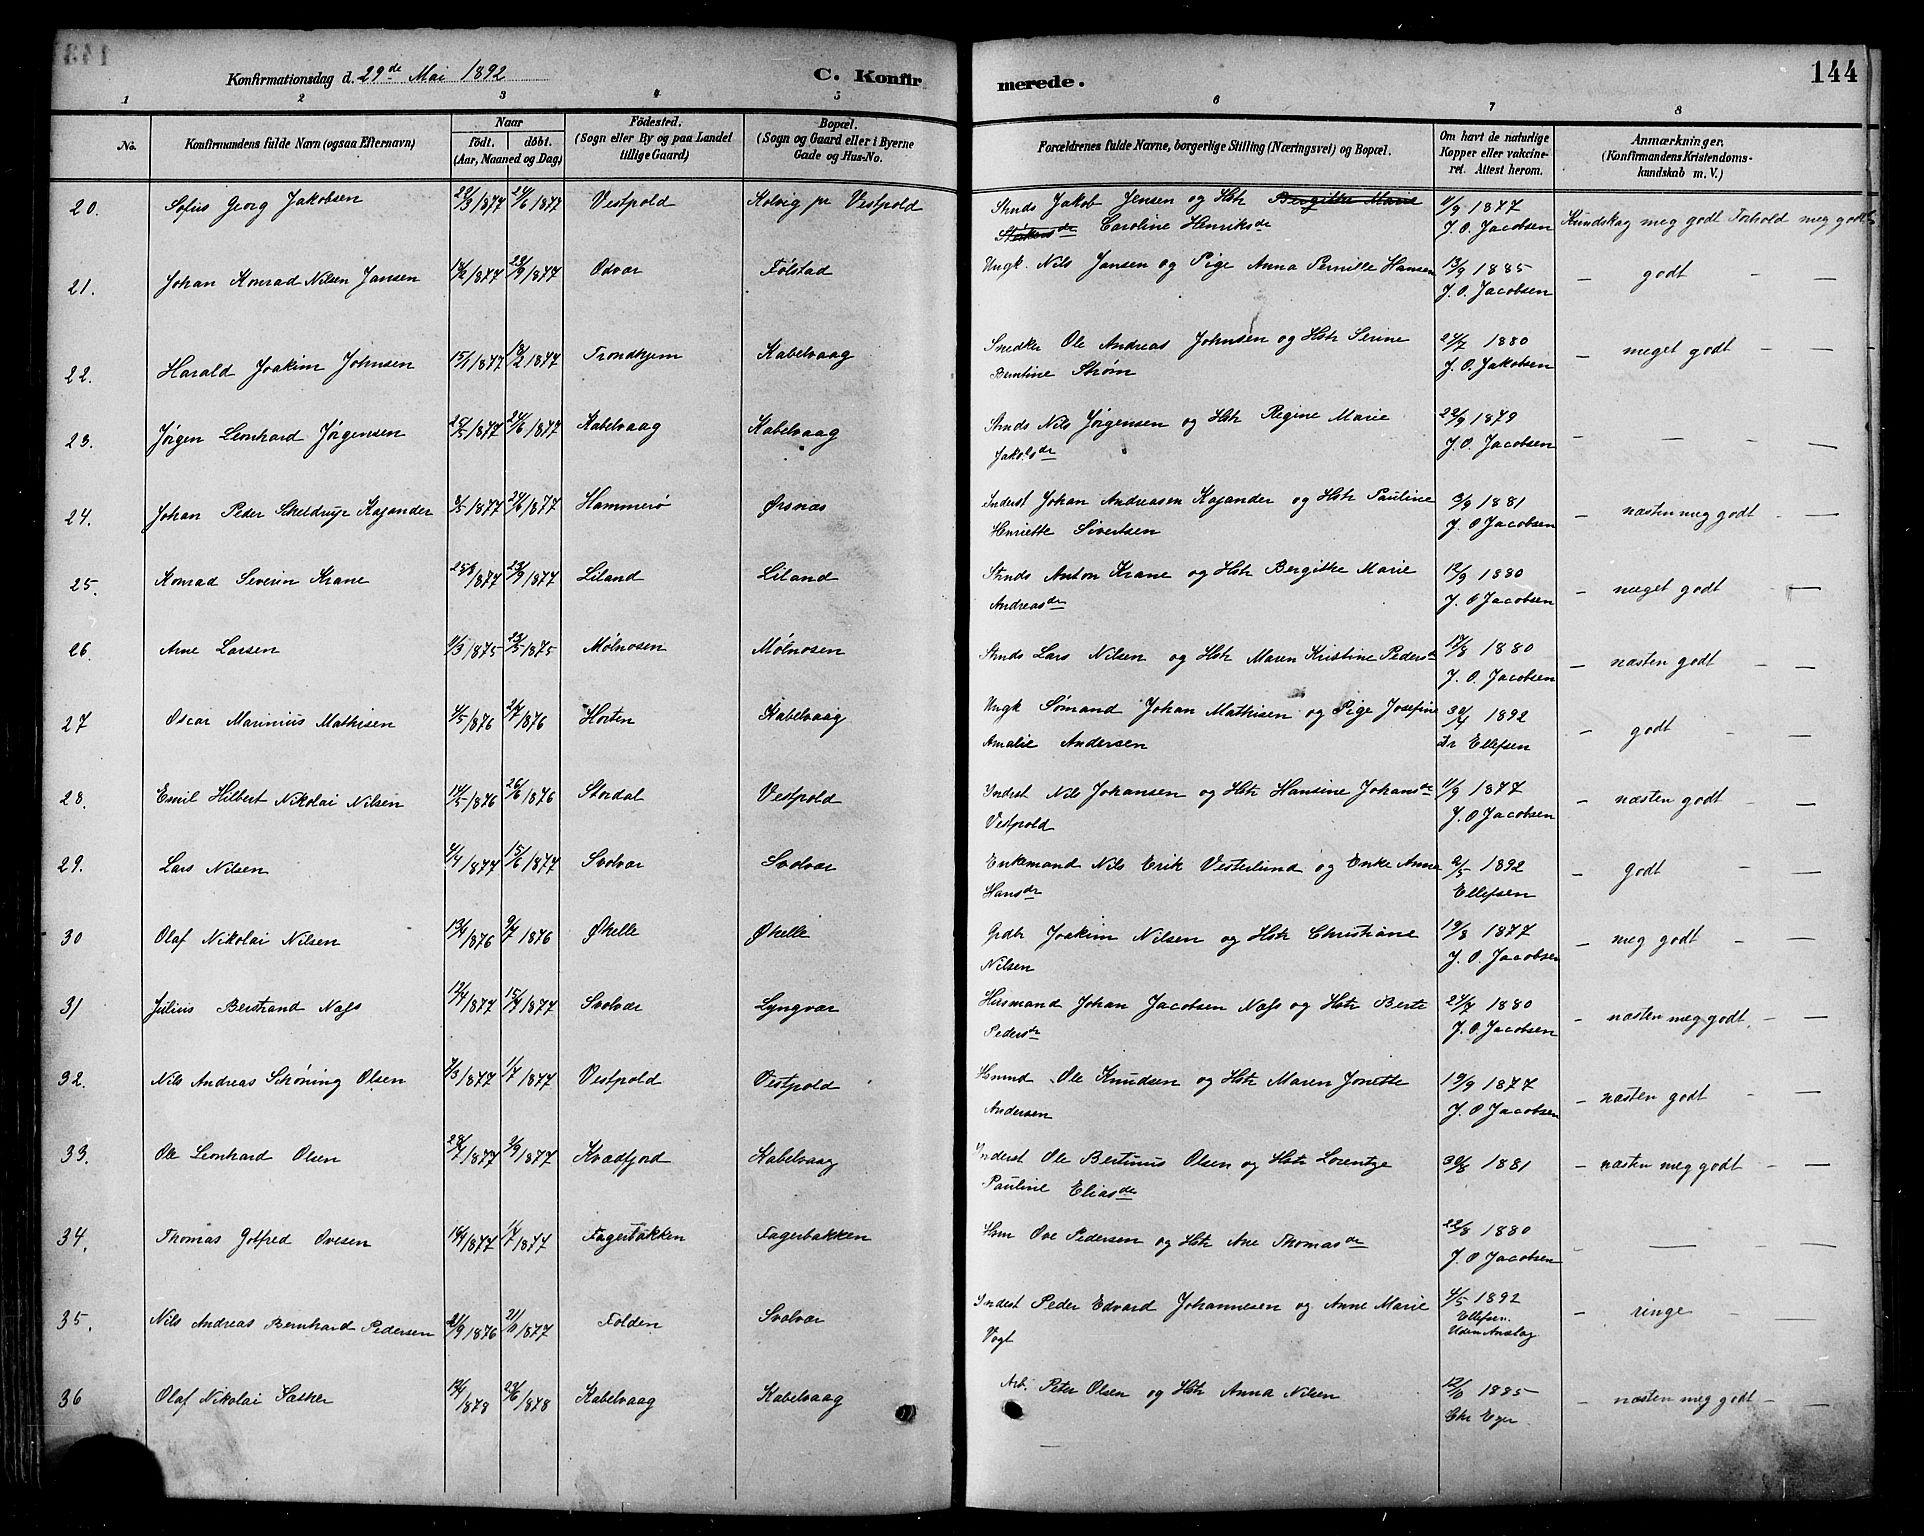 Konfirmationsdag d. 29de Mai 1892
C. Konfirmerede.
144
1 2 3 4 5 6 7 8
No.
Konfirmandens fulde Navn (ogsaa Efternavn)
Naar
födt. döbt.
(Aar, Maaned og Dag)
Födested.
(Sogn eller By og paa Landet
tillige Gaard)
Bopæl.
(Sogn og Gaard eller i Byerne
Gade og Hus-No.
Forældrenes fulde Navne, borgerlige Stilling (Næringsvei) og Bopæl.
Om havt de naturlige
Kopper eller vakcine-
ret. Attest herom.
Anmærkninger.
(Konfirmandens Kristendoms-
kundskab m. V.)
20. Sofus Georg Jakobsen 29/3 1877 24/6 1877 Vestpold Kalvig pr Vestpold Strnds Jakob Jensen og Hstr Bergithe Marie 11/9 1877 Kundskap meg godt Forhold meg godt
de Caroline Henriksde J. O. Jacobsen
21. Johan Konrad Nilsen Jansen 1877 1877 Odvær Følstad Ungk. Nils Jansen og Pige Anna Pernille Hansen 13/9 1885 – godt – –
J. O. Jacobsen
22. Harald Joakim Johnsen 15/1 1877 18/2 1877 Trondhjem Kabelvaag Snedker Ole Andreas Johnsen og Hstr Serine 24/7 1880 – meget godt – –
Berntine Strøm J. O. Jakobsen
23. Jørgen Leonhard Jørgensen 25/5 1877 24/6 1877 Kabelvaag Kabelvaag Strnds Nils Jørgensen og Hstr Regine Marie 22/9 1879 – – –
Jakobsdr J. O. Jacobsen
24. Johan Peder Scheldrup Kajander 8/5 1877 24/6 1877 Hammerø Ørsnæs Inderst Johan Andreasen Kajander og Hstr Pauline 3/9 1881 – næsten meg godt – –
Henriette Sivertsen J. O Jacobsen
25. Konrad Severin Krane 1877 23/9 1877 Liland Liland Strnds Anton Krane og Hstr Bergithe Marie 12/9 1880 – meget godt –
Andreasdr J. O Jacobsen
26. Arne Larsen 11/3 1875 23/5 1875 Mølnosen Mølnosen Strnds Lars Nilsen og Hstr Maren Kristine Pedersdr 17/8 1880 – næsten godt – –
J. O. Jacobsen
27 Oscar Marinius Mathisen 4/5 1876 1876 Horten Kabelvaag Ungk Sømand Johan Mathisen og Pige Josefine 30/4 1892 – godt – –
Amalie Andersen Dr Ellefsen
28. Emil Hilbert Nikolai Nilsen 14/5 1876 26/6 1876 Stordal Vestpold Inderst Nils Johansen og Hstr Hansine Johansdr 11/9 1877 – næsten godt – –
Vestpold J. O Jacobsen
29. Lars Nilsen 4/4 1877 15/6 1877 Svolvær Svolvær Enkemand Nils Erik Vesterlund og Enke Anne 2/5 1892 – godt – –
Hansdr Ellefsen
30 Olaf Nikolai Nilsen 1876 9/7 1876 Økelle Økelle Grdbr Joakim Nilsen og Hstr Christiane 19/8 1877 – meg godt – –
Nilsen J. O. Jacobsen
31 Julius Berstrand Næss 1877 15/4 1877 Svolvær Lyngvær Husmand Johan Jacobsen Næss og Hstr Berte 24/7 1880 – næsten meg godt – –
Pedersdr J. O. Jacobsen
32. Nils Andreas Schøning Olsen 7/3 1877 1/7 1877 Vestpold Vestpold Husmd Ole Knudsen og Hstr Maren Jonette 19/9 1877 – næsten godt – –
Andersen J. O Jacobsen
33. Ole Leonhard Olsen 1877 2/9 1877 Kvædfjord Kabelvaag Inderst Ole Bertinus Olsen og Hstr Lorentze 30/8 1881 – næsten meg godt – –
Pauline Eliasdr
34. Thomas Gotfred Ovesen 14/4 1877 1/7 1877 Fagerbakken Fagerbakken Hsm Ove Pedersen og Hstr Ane Thomasdr 22/8 1880 – – –
J. O Jacobsen
35. Nils Andreas Bernhard Pedersen 21/9 1876 1877 Folden Svolvær Inderst Peder Edvard Johannesen og Anne Marie 4/5 1892 – ringe – –
Vogt Ellefsen.
Uden Anslag
36 Olaf Nikolai Sæther 1878 23/6 1878 Kabelvaag Kabelvaag Arb. Peter Olsen og Hstr Anna Nilsen 1885 – næsten meg godt – –
Chr Eger